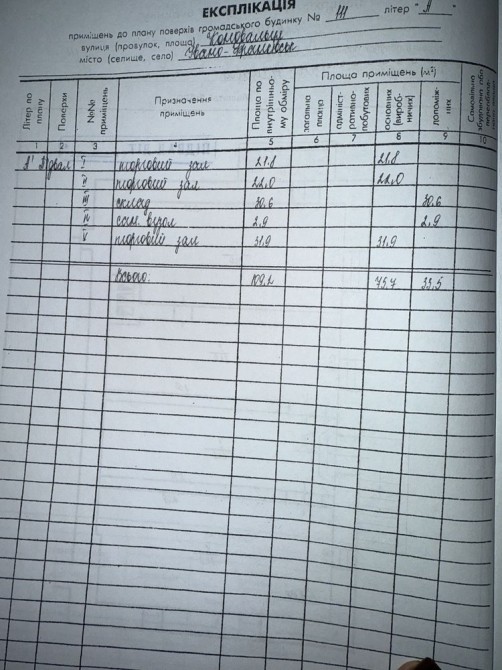 ЕКСПЛІКАЦІЯ
приміщень до плану поверхів громадського будинку № III літер "А"
вулиця (провулок, площа) Коновальця
місто (селище, село) Івано-Франківськ
Літер по плану
Поверхи
№№ приміщень
Призначення приміщень
Площа по внутрішньому обміру
Площа приміщень (м²)
загальна площа
адміністративно-побутових
основних (виробничих)
допоміжних
Самовільно
1 2 3 4 5 6 7 8 9 10
А' Підвал I торговий зал 21.8 21.8
II торговий зал 22.0 22.0
III склад 30.6 30.6
IV сан. вузол 2.9 2.9
V торговий зал 31.9 31.9
Всього: 109.2 75.7 33.5